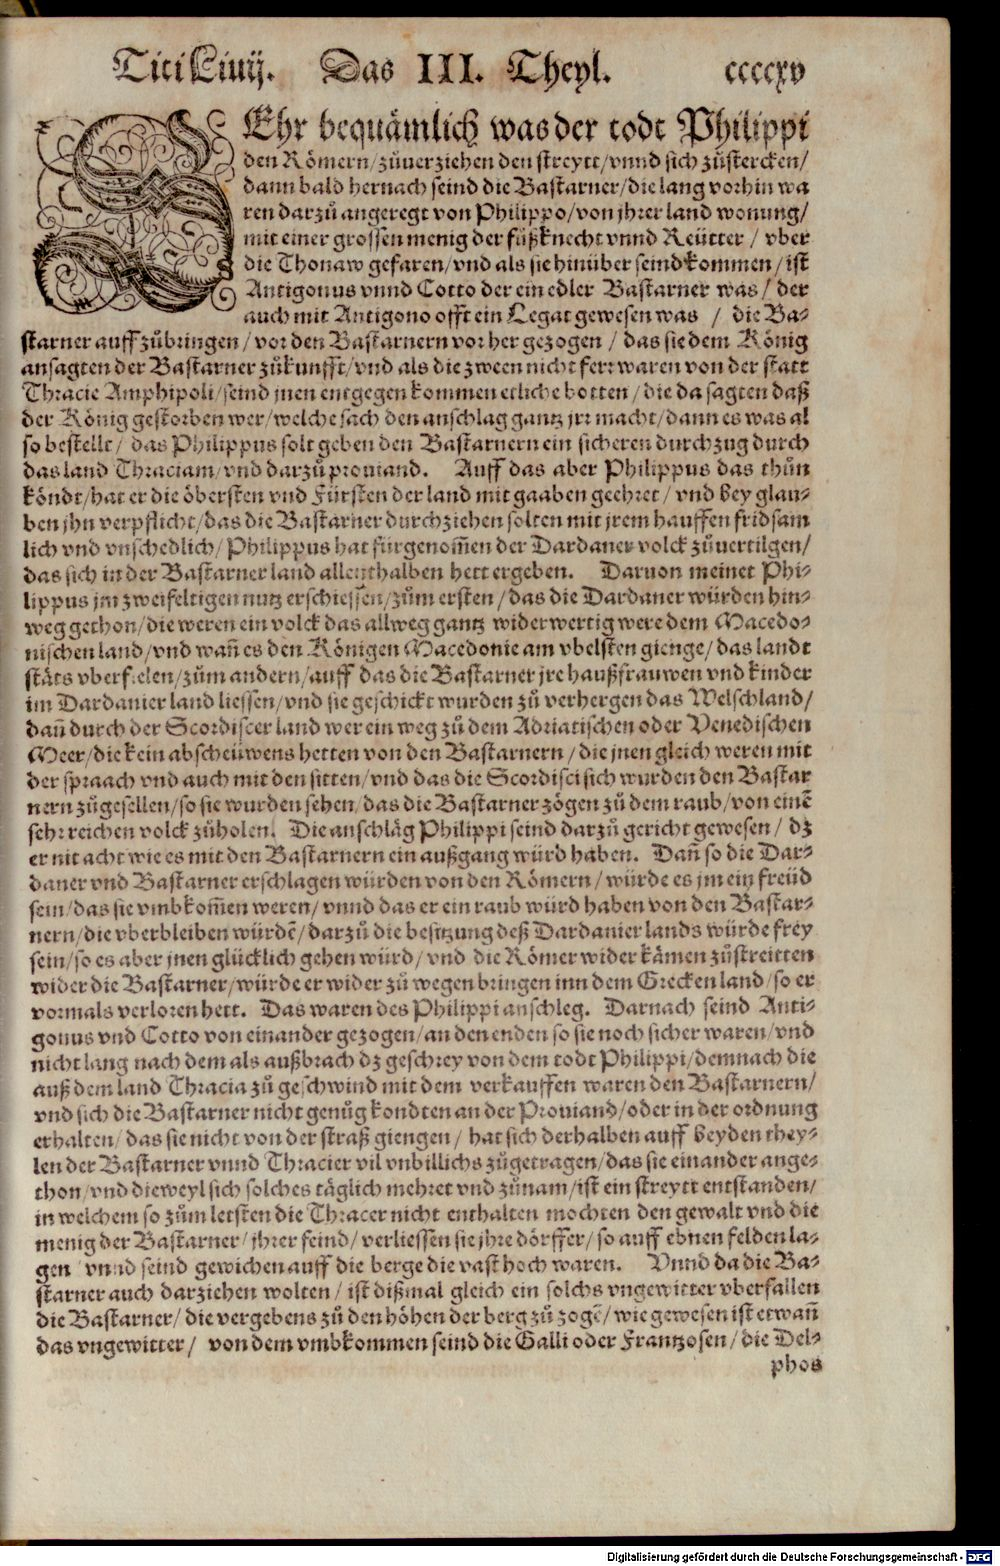 Titi Liuij. Das III. Theyl. ccccxv
SEhr bequämlich was der todt Philippi
den Römern/zůuerziehen den streytt/vnnd sich zůstercken/
dann bald hernach seind die Bastarner/die lang vorhin wa
ren darzů angeregt von Philippo/von jhrer land wonung/
mit einer grossen menig der fůßknecht vnnd Reütter / vber
die Thonaw gefaren/vnd als sie hinüber seind kommen/ist
Antigonus vnnd Cotto der ein edler Bastarner was/ der
auch mit Antigono offt ein Legat gewesen was / die Ba-
starner auff zůbringen/vor den Bastarnern vor her gezogen / das sie dem König
ansagten der Bastarner zůkunfft/vnd als die zween nicht ferr waren von der statt
Thracie Amphipoli/seind jnen entgegen kommen etliche botten / die da sagten daß
der König gestorben wer/welche sach den anschlag gantz jrr macht/dann es was al
so bestellt/ das Philippus solt geben den Bastarnern ein sicheren durchzug durch
das land Thraciam/vnd darzů prouiand. Auff das aber Philippus das thůn
köndt/hat er die öbersten vnd Fürsten der land mit gaaben geehret/ vnd bey glau-
ben jhn verpflicht/das die Bastarner durchziehen solten mit jrem hauffen fridsam
lich vnd vnschedlich/Philippus hat fürgenom̃en der Dardaner volck zůuertilgen/
das sich in der Bastarner land allenthalben hett ergeben. Daruon meinet Phi-
lippus jm zweifeltigen nutz erschiessen/zům ersten / das die Dardaner würden hin-
weg gethon/die weren ein volck das allweg gantz widerwertig were dem Macedo-
nischen land/vnd wañ es den Königen Macedonie am vbelsten gienge/das landt
stäts vberfielen/zům andern/auff das die Bastarner jre haußfrauwen vnd kinder
im Dardanier land liessen/vnd sie geschickt wurden zů verhergen das Welschland/
dañ durch der Scordiscer land wer ein weg zů dem Adriatischen oder Venedischen
Meer/die kein abscheüwens hetten von den Bastarnern / die jnen gleich weren mit
der spraach vnd auch mit den sitten/vnd das die Scordisci sich wurden den Bastar
nern zůgesellen/so sie wurden sehen/das die Bastarner zögen zů dem raub/von einẽ
sehr reichen volck zůholen. Die anschläg Philippi seind darzů gericht gewesen/ dz
er nit acht wie es mit den Bastarnern ein außgang würd haben. Dañ so die Dar-
daner vnd Bastarner erschlagen würden von den Römern/würde es jm ein freüd
sein/das sie vmbkom̃en weren/ vnnd das er ein raub würd haben von den Bastar-
nern/die vberbleiben würdẽ/darzů die besitzung deß Dardanier lands würde frey
sein/so es aber jnen glücklich gehen würd/vnd die Römer wider kämen zůstreitten
wider die Bastarner/würde er wider zů wegen bringen inn dem Grecken land/so er
vormals verloren hett. Das waren des Philippi anschleg. Darnach seind Anti-
gonus vnd Cotto von einander gezogen/an den enden so sie noch sicher waren/vnd
nicht lang nach dem als außbrach dz geschrey von dem todt Philippi/demnach die
auß dem land Thracia zů geschwind mit dem verkauffen waren den Bastarnern/
vnd sich die Bastarner nicht genůg kondten an der Prouiand/oder in der ordnung
erhalten/das sie nicht von der straß giengen/ hat sich derhalben auff beyden they-
len der Bastarner vnnd Thracier vil vnbillichs zůgetragen/das sie einander ange-
thon/vnd dieweyl sich solches täglich mehret vnd zůnam/ist ein streytt entstanden/
in welchem so zům letsten die Thracer nicht enthalten mochten den gewalt vnd die
menig der Bastarner/jhrer feind/verliessen sie jhre dörffer/so auff ebnen felden la-
gen vnnd seind gewichen auff die berge die vast hoch waren. Vnnd da die Ba-
starner auch darziehen wolten/ ist dißmal gleich ein solchs vngewitter vberfallen
die Bastarner/die vergebens zů den höhen der berg zů zogẽ/wie gewesen ist etwañ
das vngewitter/ von dem vmbkommen seind die Galli oder Frantzosen/die Del-
phos
Digitalisierung gefördert durch die Deutsche Forschungsgemeinschaft - DFG